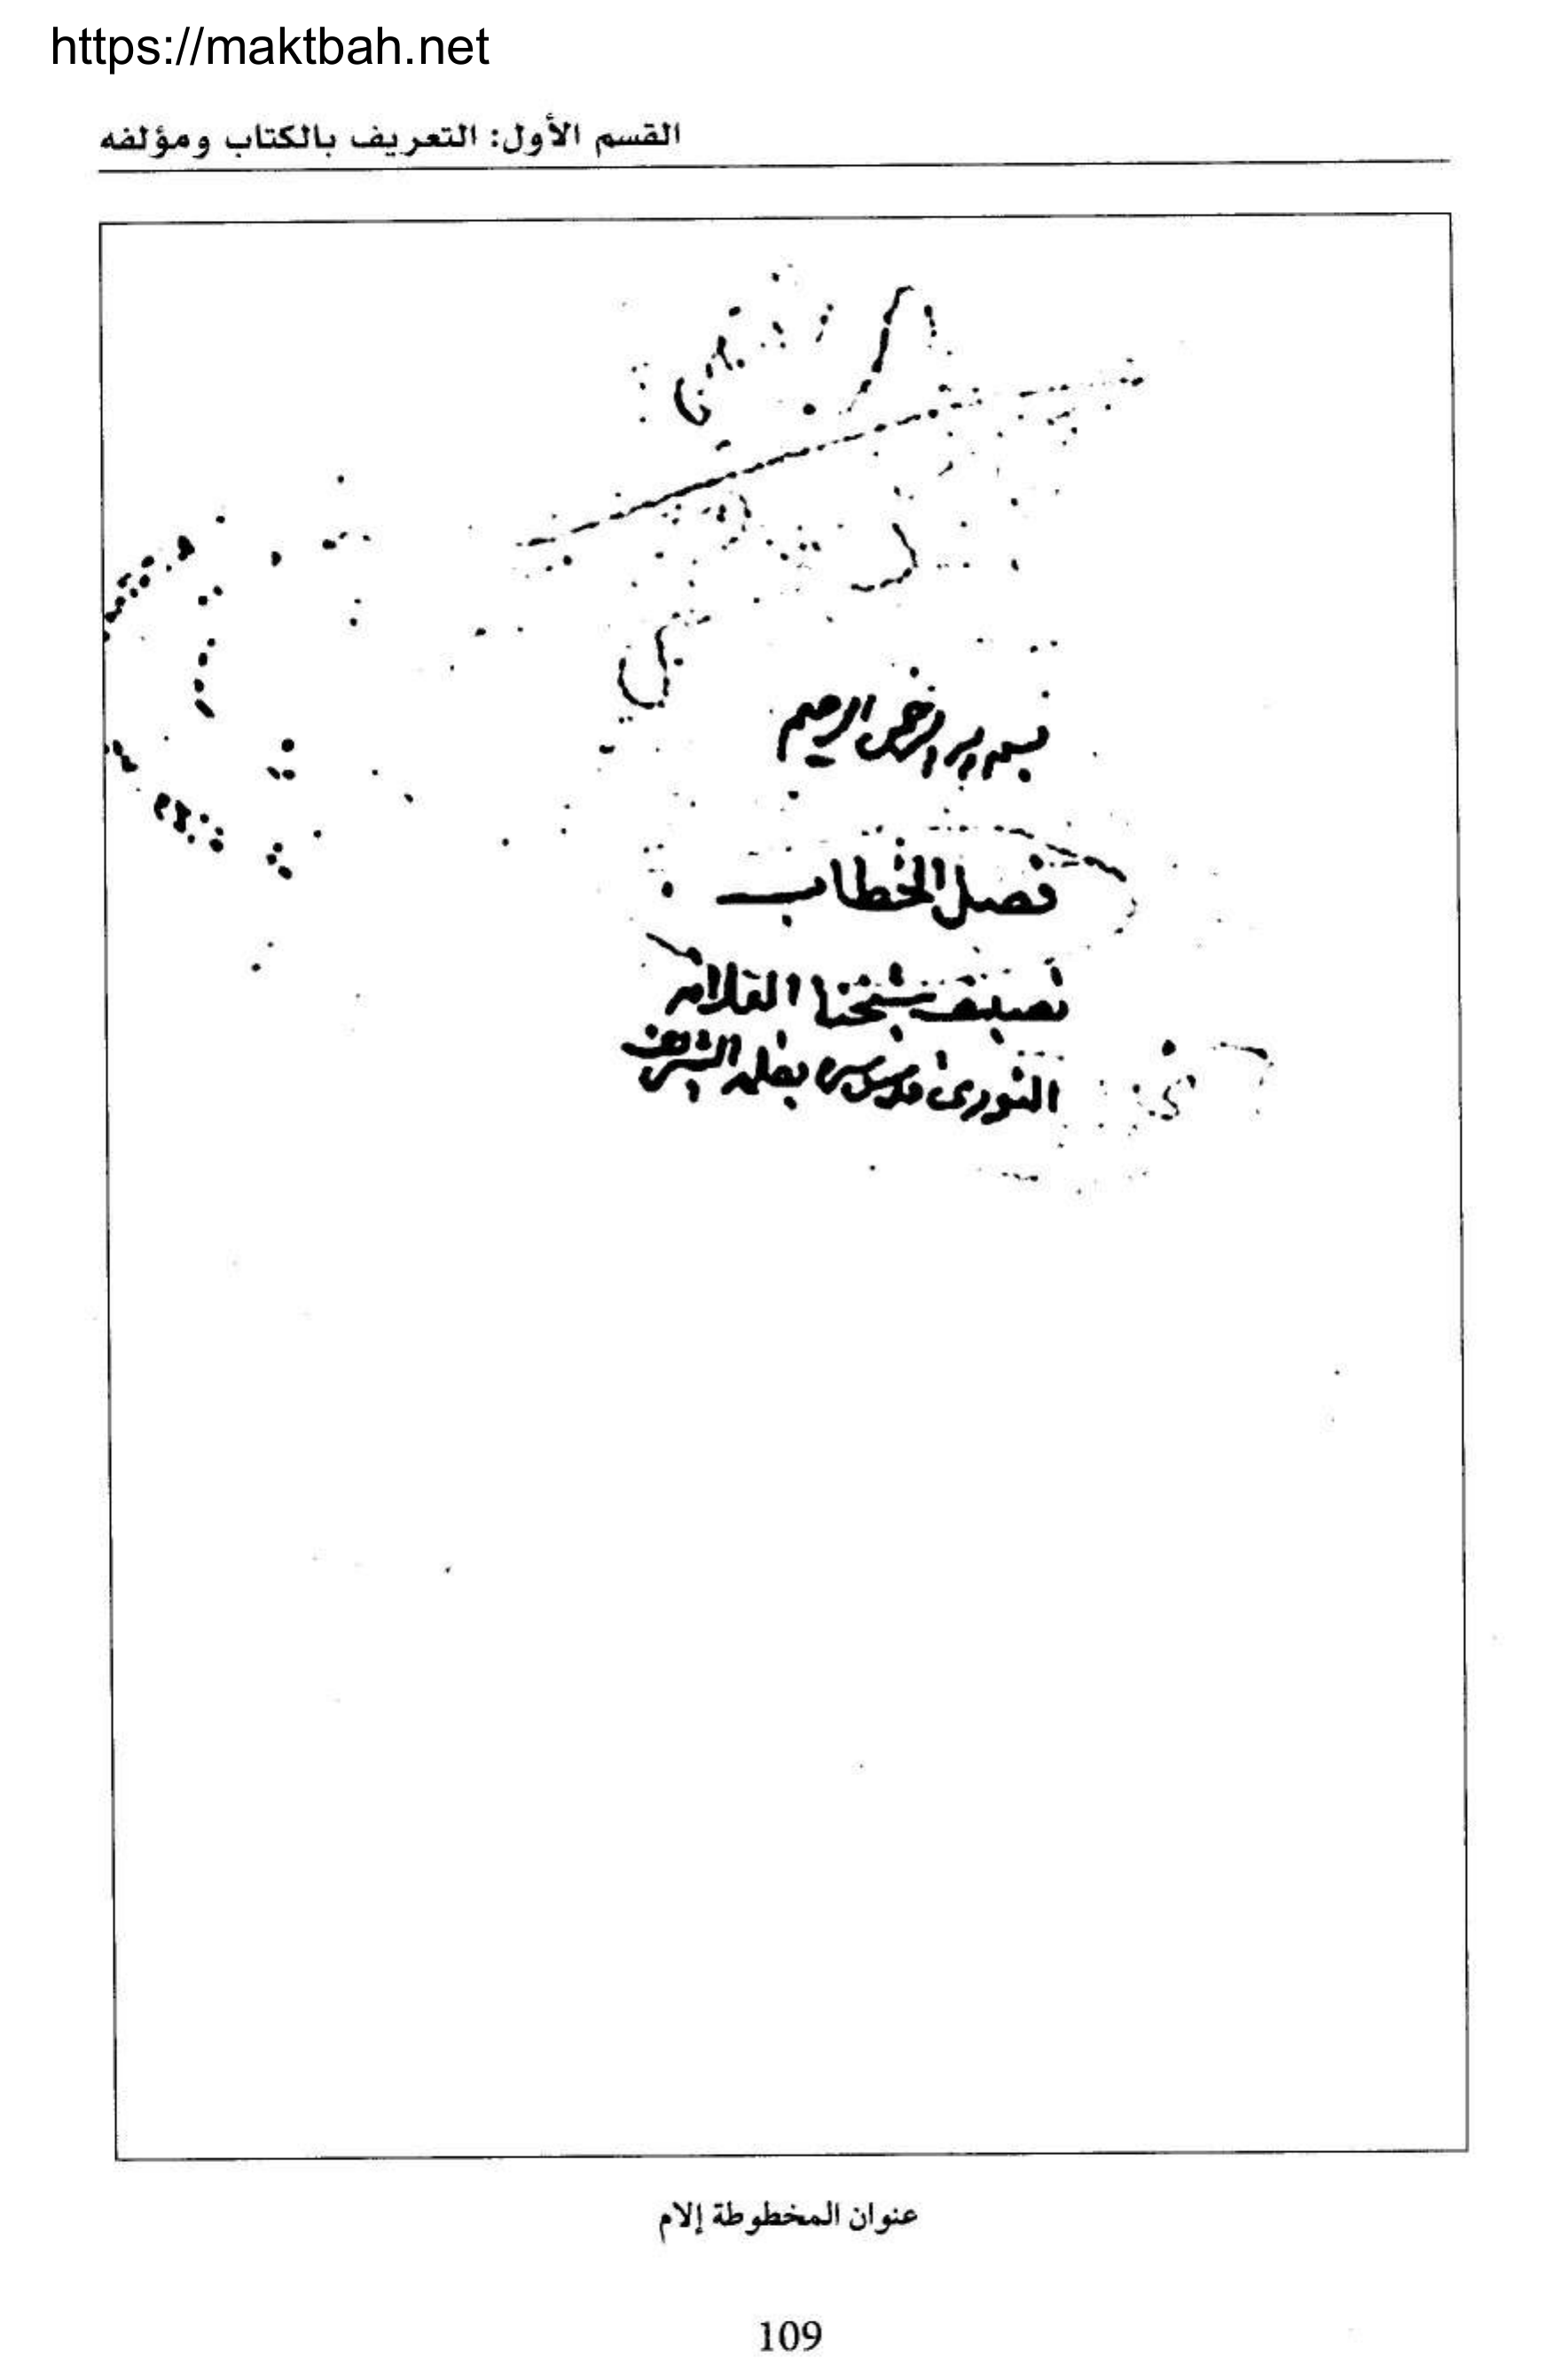 https://maktbah.net
القسم الأول: التعريف بالكتاب ومؤلفه
بسم الله الرحمن الرحيم
فصل الخطاب
تصنيف شيخنا العلامه
النورى قدس سره بخطه الشريف
عنوان المخطوطة إلام
109